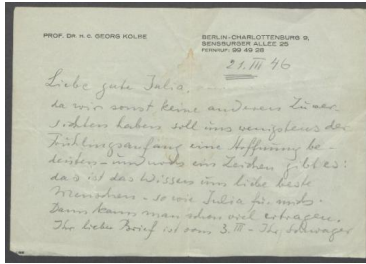 PROF. DR. H. C. GEORG KOLBE
BERLIN-CHARLOTTENBURG 9,
SENSBURGER ALLEE 25
FERNRUF: 99 49 28
21. III 46
Liebe gute Julia,
da wir sonst keine anderen Zuver-
sichten haben soll uns wenigstens der
Frühlingsanfang eine Hoffnung be-
deuten – und noch ein Zeichen gibt es:
das ist das Wissen um liebe beste
Menschen – so wie Julia für mich.
Dann kann man schon viel ertragen.
Ihr lieber Brief ist vom 3. III – Ihr Schwager